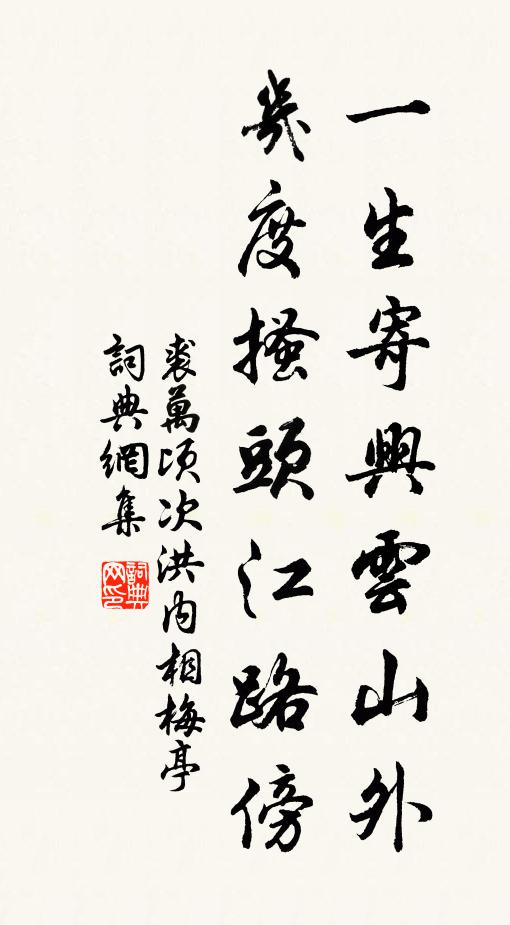 一生寄興雲山外
幾度搔頭江路傍
裘萬頃次洪內相梅亭
詞典網集
詞典網印